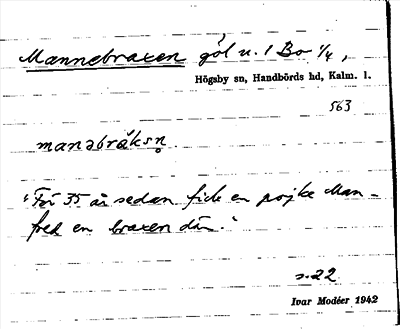 Mannebraxen göl u. 1 Bo 1/4,
Högsby sn, Handbörds hd, Kalm. l.
563
manəbräksn̥
"För 35 år sedan fick en pojke Man-
fred en braxen där."
s. 22
Ivar Modéer 1942